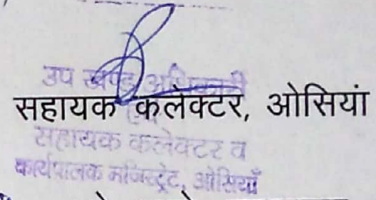 उप खण्ड अधिकारी
सहायक कलेक्टर, ओसियां
सहायक कलेक्टर व
कार्यपालक मजिस्ट्रेट, ओसियाँ